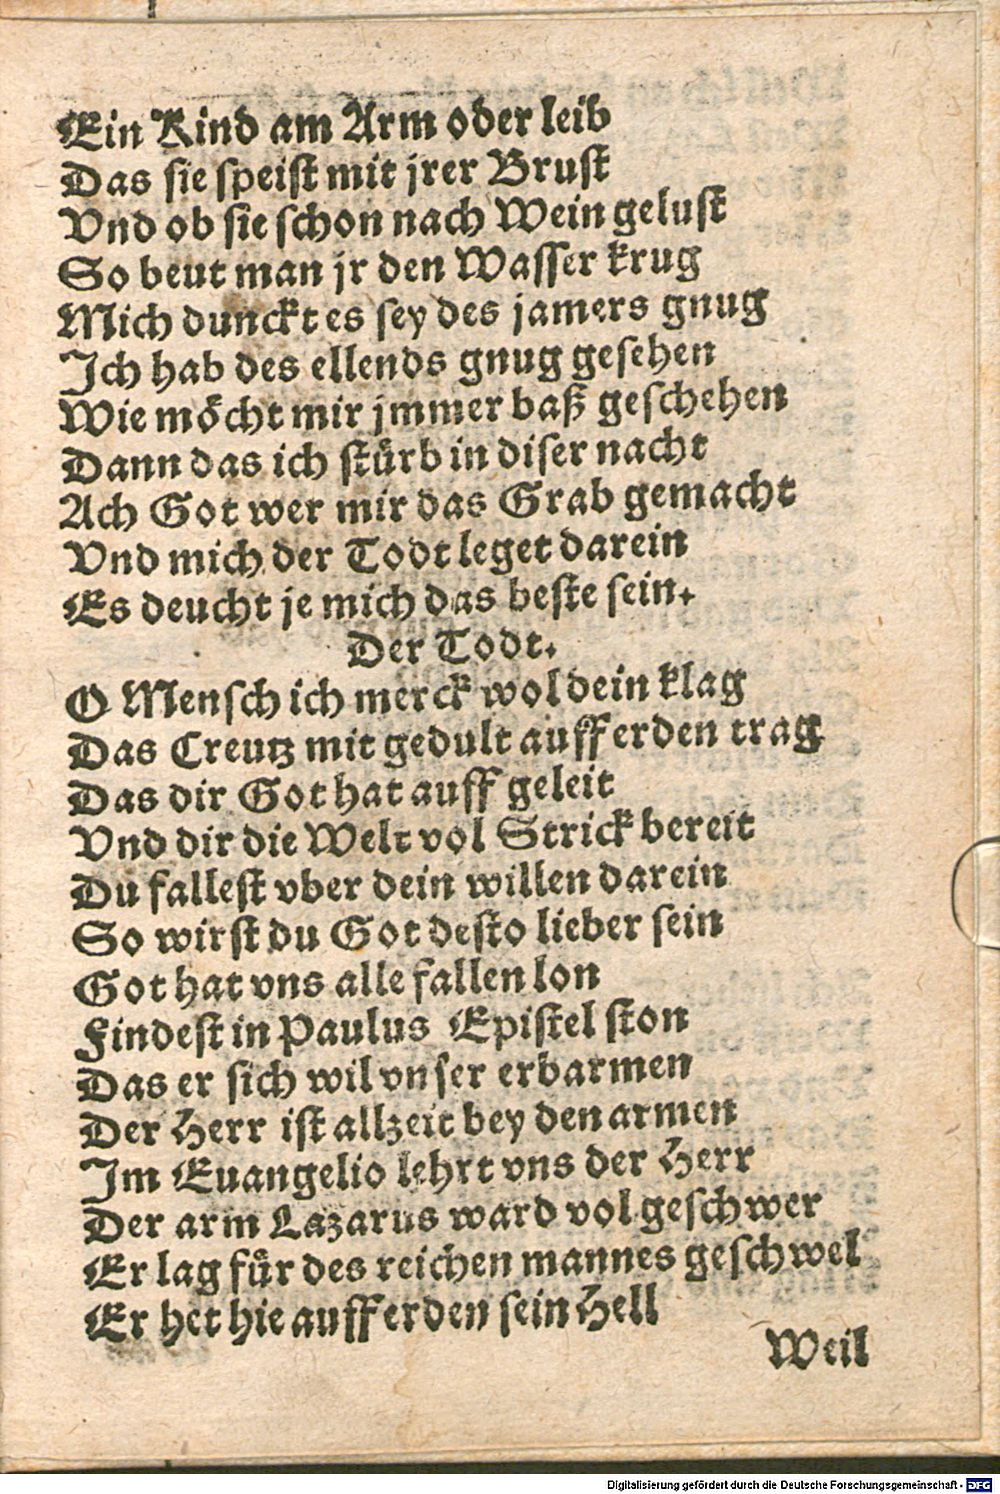 Ein Kind am Arm oder leib
Das sie speist mit jrer Brust
Vnd ob sie schon nach Wein gelust
So beut man jr den Wasser krug
Mich dunckt es sey des jamers gnug
Ich hab des ellends gnug gesehen
Wie möcht mir jmmer baß geschehen
Dann das ich stürb in diser nacht
Ach Got wer mir das Grab gemacht
Vnd mich der Todt leget darein
Es deucht je mich das beste sein.
Der Todt.
O Mensch ich merck wol dein klag
Das Creutz mit gedult auff erden trag
Das dir Got hat auff geleit
Vnd dir die Welt vol Strick bereit
Du fallest vber dein willen darein
So wirst du Got desto lieber sein
Got hat vns alle fallen lon
Findest in Paulus Epistel ston
Das er sich wil vnser erbarmen
Der Herr ist allzeit bey den armen
Im Euangelio lehrt vns der Herr
Der arm Lazarus ward vol geschwer
Er lag für des reichen mannes geschwel
Er het hie auff erden sein Hell
Weil
Digitalisierung gefördert durch die Deutsche Forschungsgemeinschaft - DFG